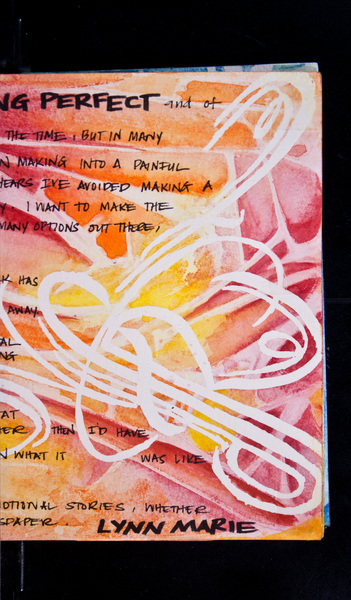 NG PERFECT - ind of
THE TIME, BUT IN MANY
N MAKING INTO A PAINFUL
EARS I'VE AVOIDED MAKING A
Y I WANT TO MAKE THE
MANY OPTIONS OUT THERE,
K HAS
AWAY.
AL
NG
AT
HER THEN I'D HAVE
N WHAT IT WAS LIKE
OTIONAL STORIES, WHETHER
SDAPER. LYNN MARIE